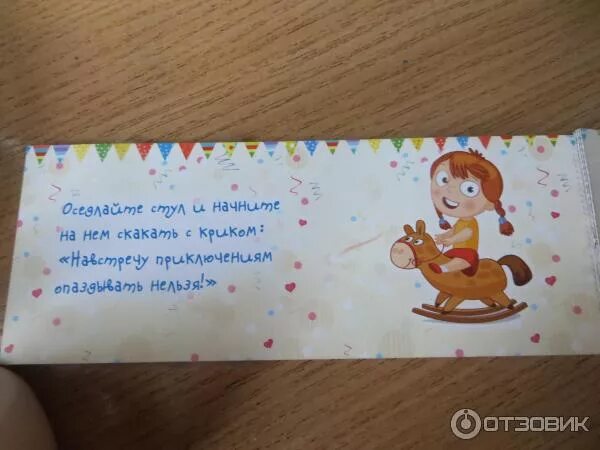 Оседлайте стул и начните
на нем скакать с криком:
«Навстречу приключениям
опаздывать нельзя!»
ОТЗОВИК